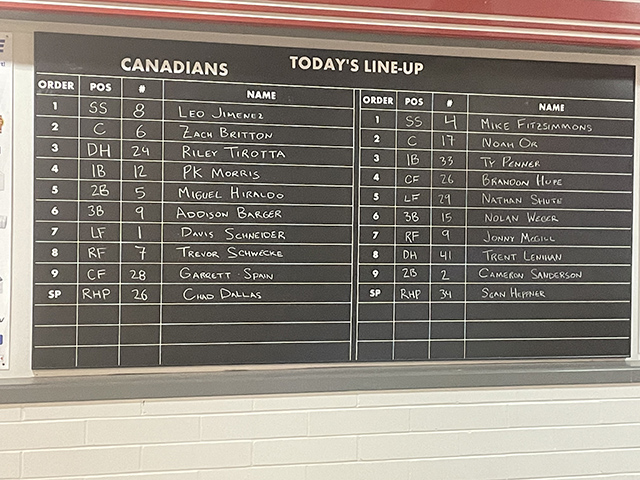 CANADIANS TODAY'S LINE-UP
ORDER POS # NAME
1 SS 8 LEO JIMENEZ
2 C 6 ZACH BRITTON
3 DH 24 RILEY TIROTTA
4 1B 12 PK MORRIS
5 2B 5 MIGUEL HIRALDO
6 3B 9 ADDISON BARGER
7 LF 1 DAVIS SCHNEIDER
8 RF 7 TREVOR SCHWECKE
9 CF 28 GARRETT SPAIN
SP RHP 26 CHAD DALLAS
ORDER POS # NAME
1 SS 4 MIKE FITZSIMMONS
2 C 17 NOAH OR
3 1B 33 TY PENNER
4 CF 26 BRANDON HUPE
5 LF 29 NATHAN SHUTE
6 3B 15 NOLAN WEGER
7 RF 9 JONNY MCGILL
8 DH 41 TRENT LENIHAN
9 2B 2 CAMERON SANDERSON
SP RHP 34 SEAN HEPPNER